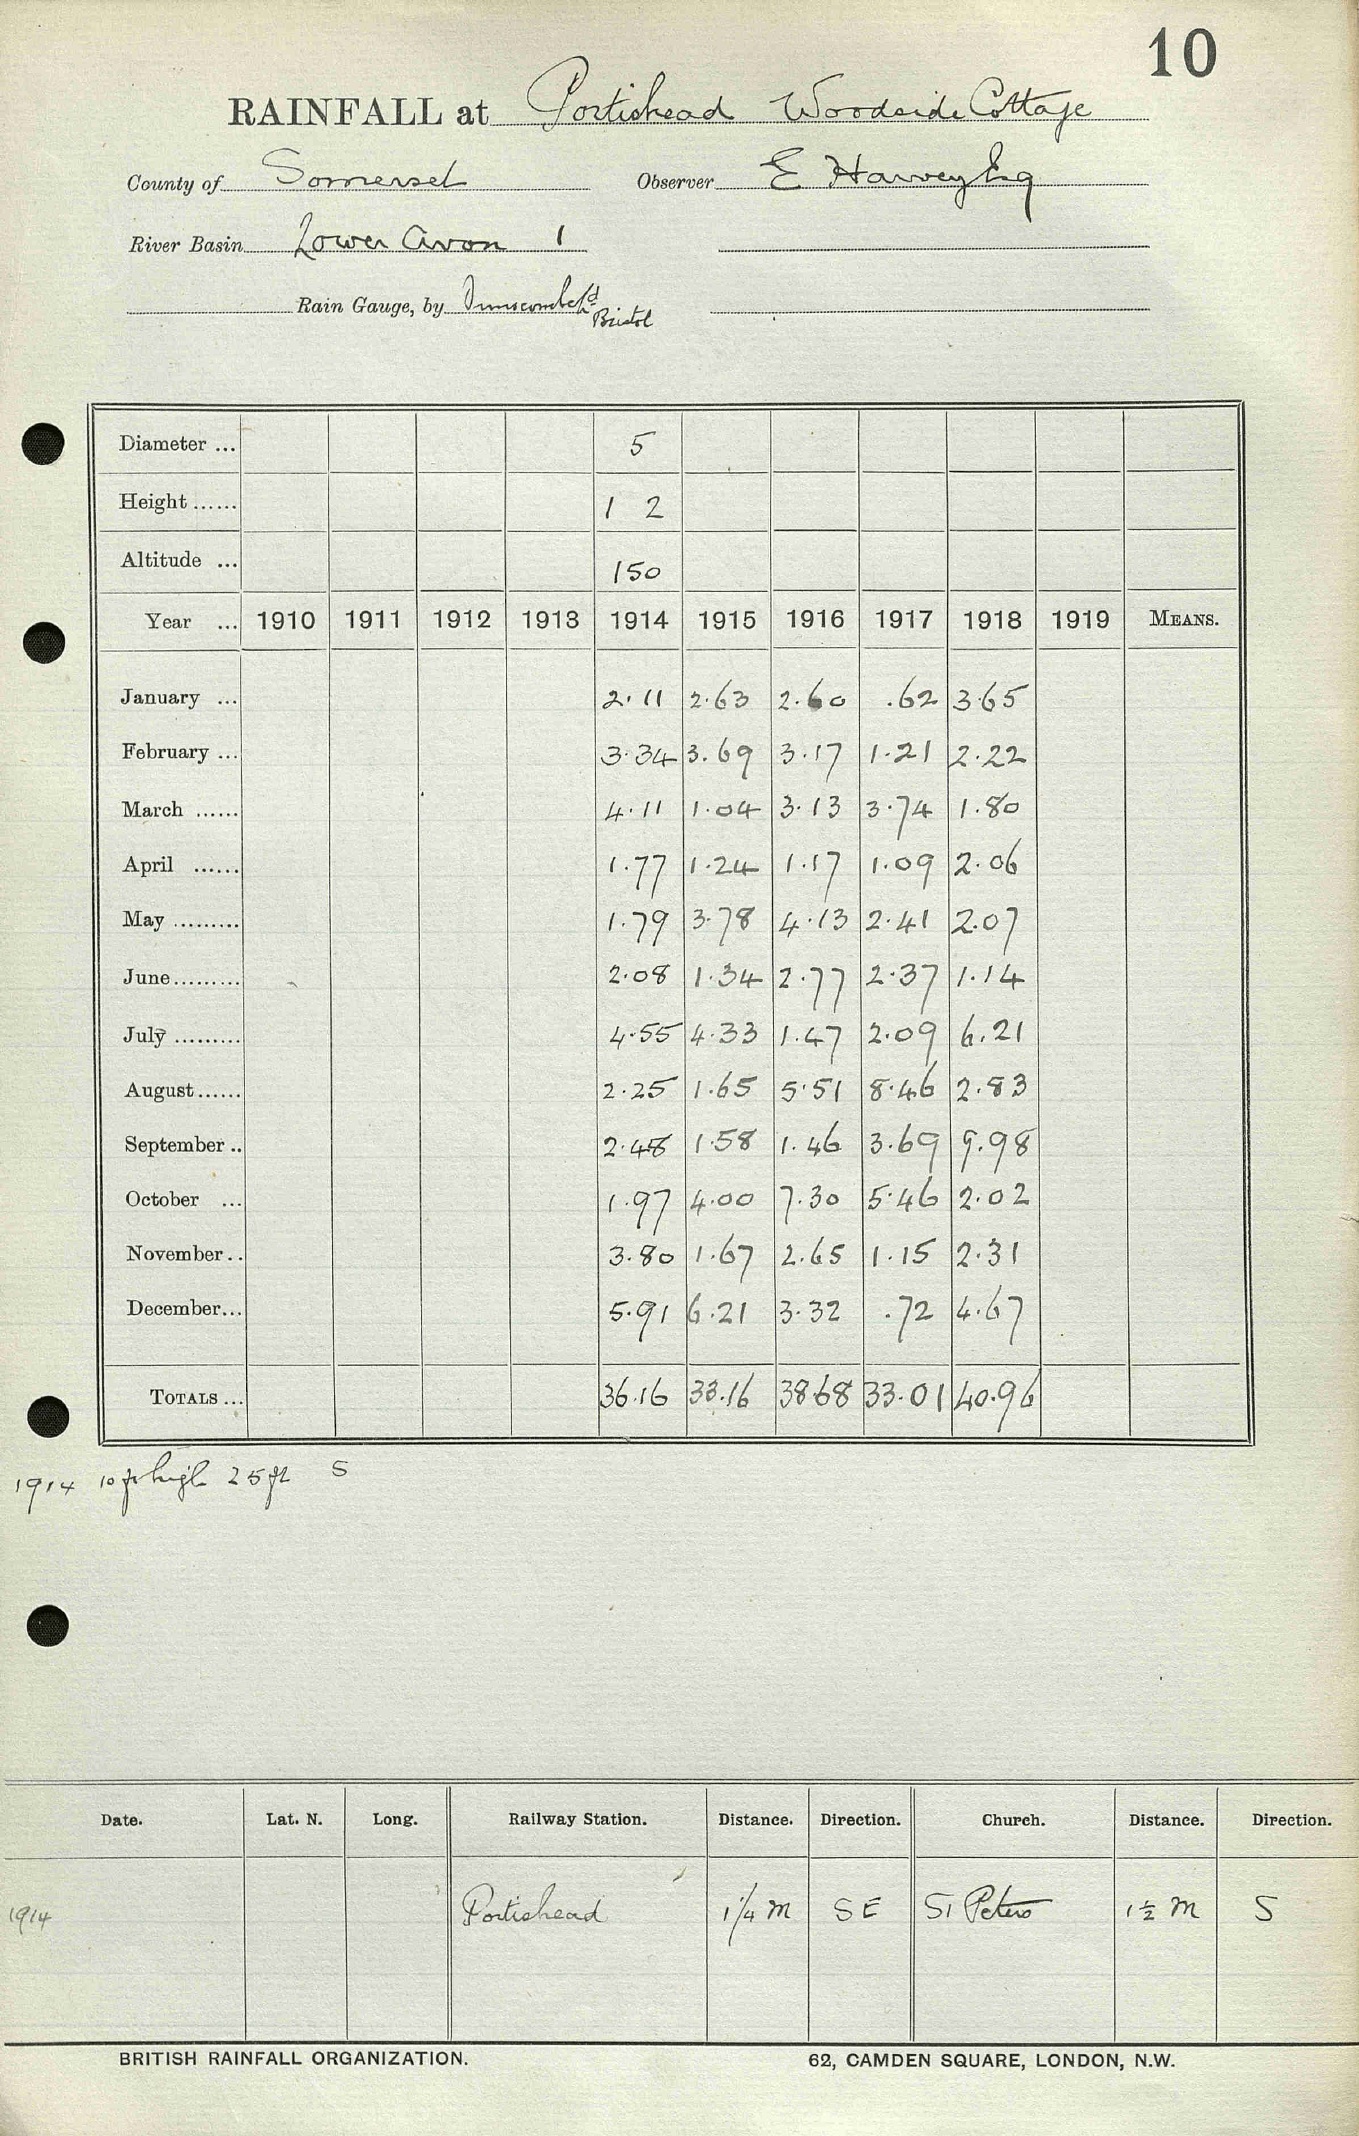 10
RAINFALL at Portishead Woodside Cottage
County of Somerset Observer E Harvey Esq
River Basin Lower Avon 1
Rain Gauge, by Dunscombe Ld
Bristol
Diameter ... 5
Height ...... 1 2
Altitude ... 150
Year ... 1910 1911 1912 1913 1914 1915 1916 1917 1918 1919 MEANS.
January ... 2.11 2.63 2.60 .62 3.65
February ... 3.34 3.69 3.17 1.21 2.22
March ...... 4.11 1.04 3.13 3.74 1.80
April ...... 1.77 1.24 1.17 1.09 2.06
May ......... 1.79 3.78 4.13 2.41 2.07
June ......... 2.08 1.34 2.77 2.37 1.14
July ......... 4.55 4.33 1.47 2.09 6.21
August ...... 2.25 1.65 5.51 8.46 2.83
September .. 2.48 1.58 1.46 3.69 9.98
October ... 1.97 4.00 7.30 5.46 2.02
November .. 3.80 1.67 2.65 1.15 2.31
December ... 5.91 6.21 3.32 .72 4.67
TOTALS ... 36.16 33.16 38.68 33.01 40.96
1914 10 ft high 25 ft S
Date. Lat. N. Long. Railway Station. Distance. Direction. Church. Distance. Direction.
1914 Portishead 1 1/4 m SE St Peters 1 1/2 m S
BRITISH RAINFALL ORGANIZATION. 62, CAMDEN SQUARE, LONDON, N.W.